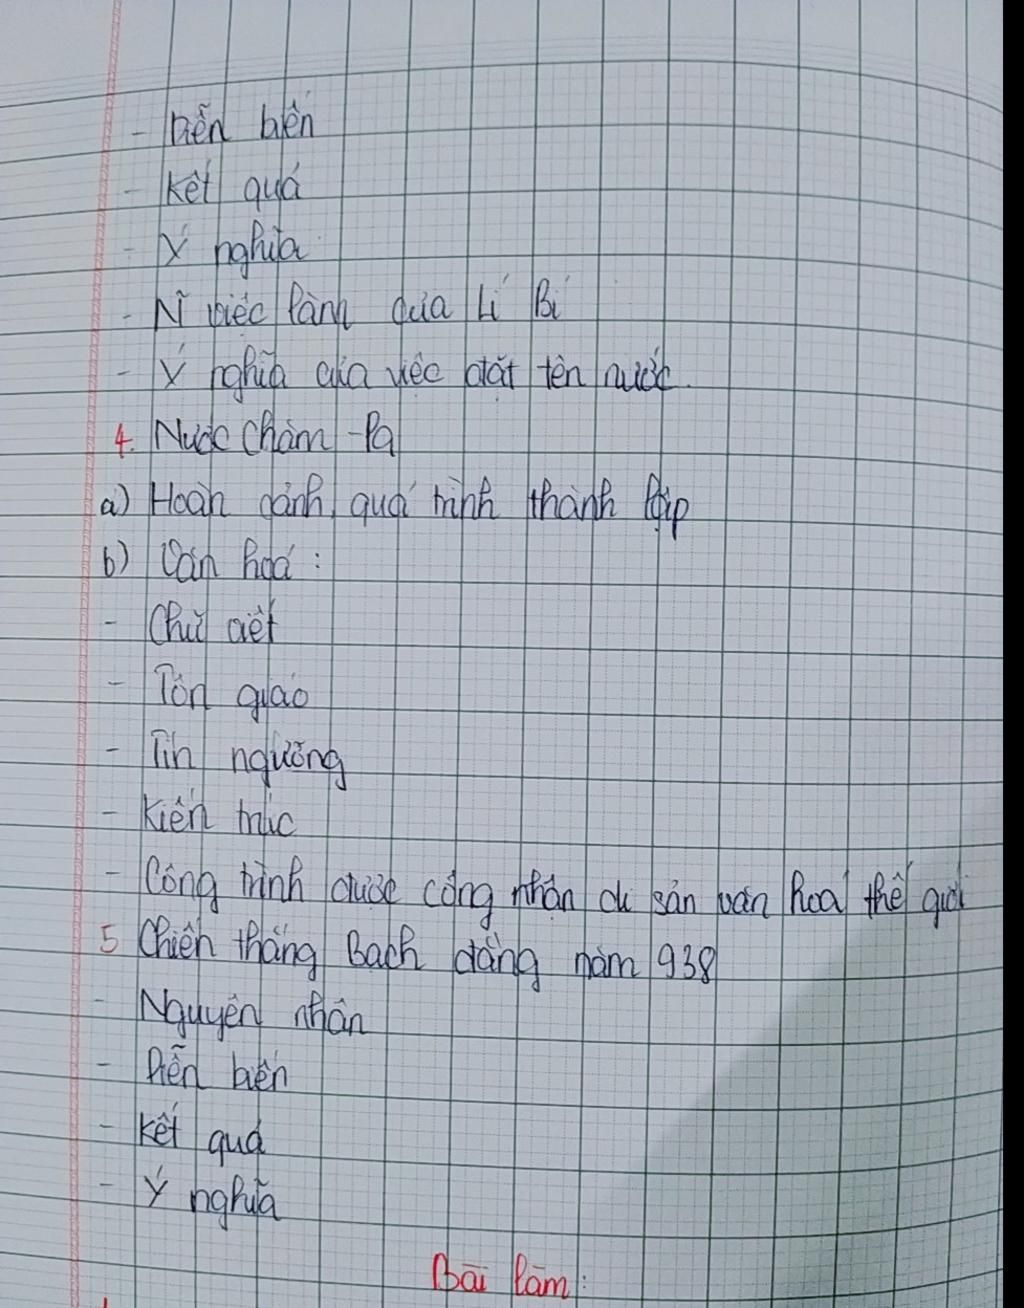 - Diễn biến
- Kết quả
- Ý nghĩa
- N~ việc làm của Lí Bí
- Ý nghĩa của việc đặt tên nước.
4. Nước Chăm-Pa
a) Hoàn cảnh, quá trình thành lập
b) Văn hoá :
- Chữ viết
- Tôn giáo
- Tín ngưỡng
- Kiến trúc
- Công trình được công nhận di sản văn hoá thế giới
5 Chiến thắng Bạch đằng năm 938
- Nguyên nhân
- Diễn biến
- Kết quả
- Ý nghĩa
Bài làm: